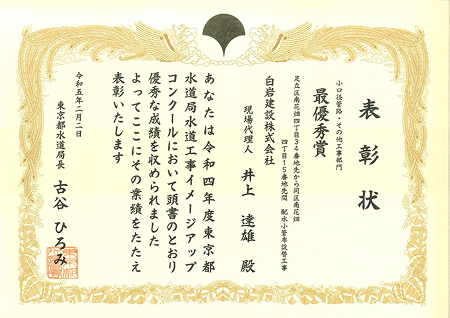 表彰状
小口径管路・その他工事部門
最優秀賞
足立区南花畑四丁目34番地先から同区南花畑
四丁目15番地先間 配水小管布設替工事
白岩建設株式会社
現場代理人 井上 達雄 殿
あなたは令和四年度東京都
水道局水道工事イメージアップ
コンクールにおいて頭書のとおり
優秀な成績を収められました
よってここにその業績をたたえ
表彰いたします
令和五年二月二日
東京都水道局長 古谷 ひろみ